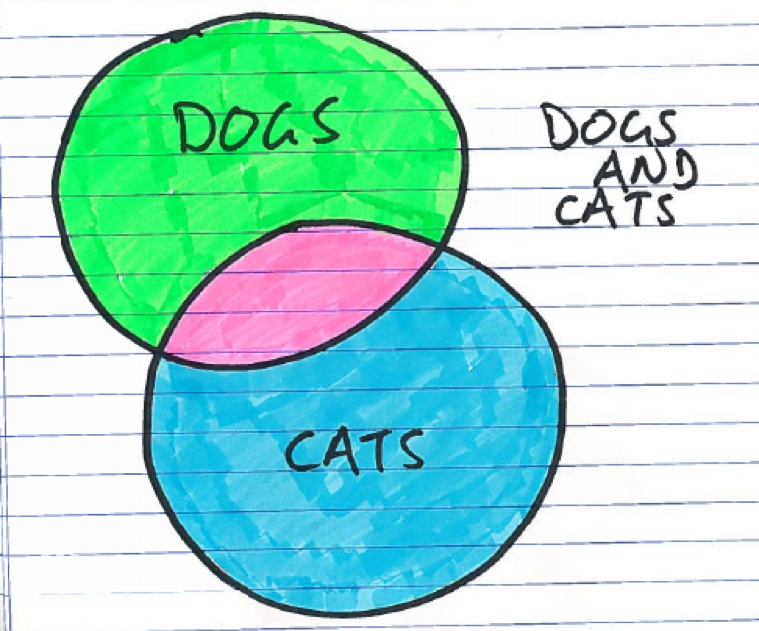 DOGS
DOGS
AND
CATS
CATS